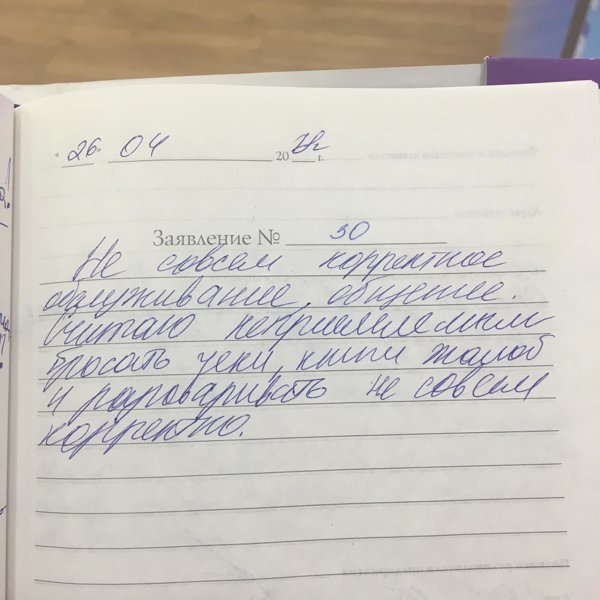 « 26 » 04 20 г.
Заявление № 30
Не совсем корректное
обслуживание, общение.
Считаю неприемлемым
бросать чеки, книги жалоб
и разговаривать не совсем
корректно.